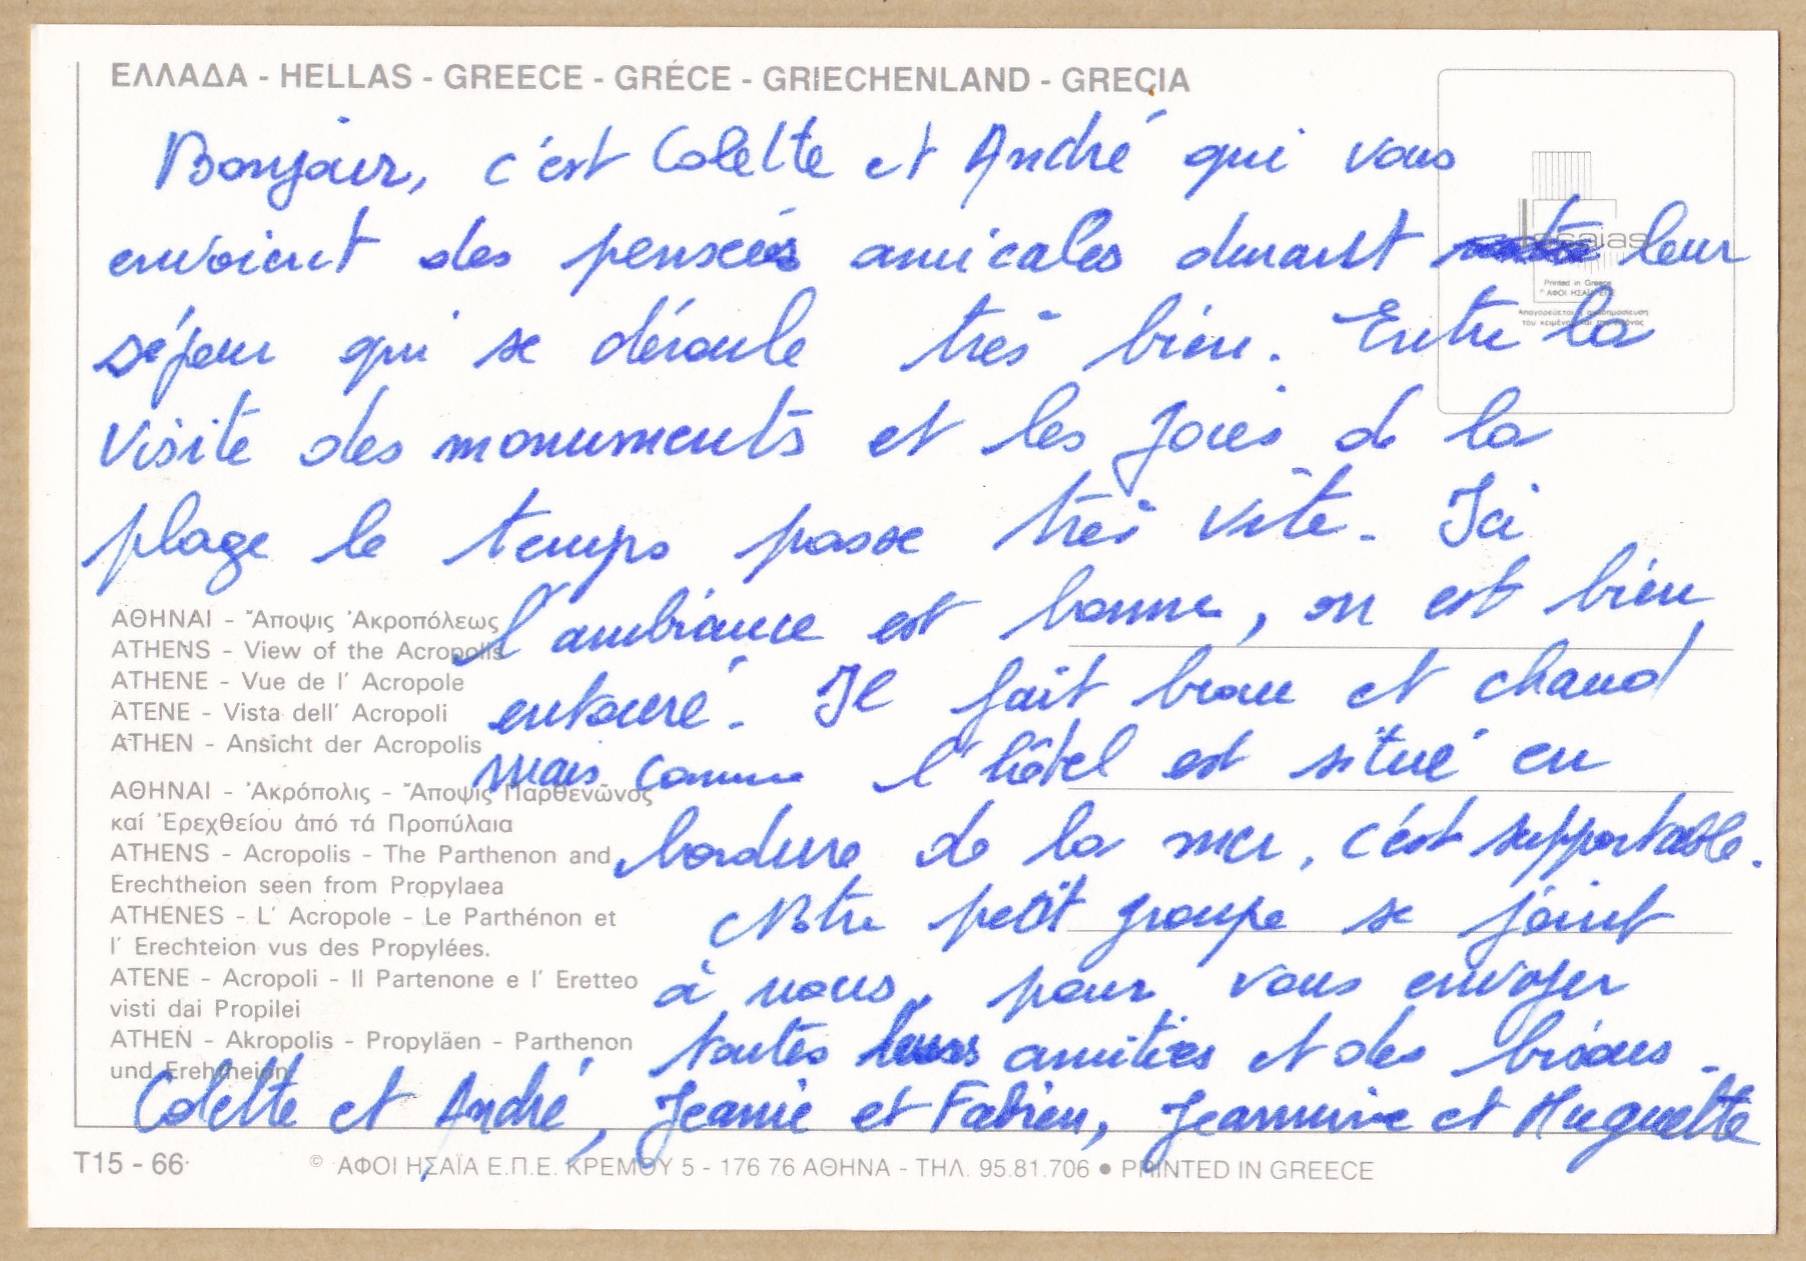 ΕΛΛΑΔΑ - HELLAS - GREECE - GRÉCE - GRIECHENLAND - GREÇIA
Bonjour, c'est Colette et André qui vous
envoient des pensées amicales durant leur
séjour qui se déroule très bien. Entre la
visite des monuments et les joies de la
plage le temps passe très vite. Ici
l'ambiance est bonne, on est bien
entouré. Il fait beau et chaud
mais comme l'hôtel est situé en
bordure de la mer, c'est supportable.
Notre petit groupe se joint
à nous, pour vous envoyer
toutes leurs amitiés et des bisous.
Colette et André, Jeanie et Fabien, Jeannine et Huguette
Printed in Greece
© ΑΦΟΙ ΗΣΑΪΑ ΕΠΕ
Απαγορεύεται η αναδημοσίευση
του κειμένου και της εικόνος
ΑΘΗΝΑΙ - Ἄποψις Ἀκροπόλεως
ATHENS - View of the Acropolis
ATHENE - Vue de l' Acropole
ATENE - Vista dell' Acropoli
ATHEN - Ansicht der Acropolis
ΑΘΗΝΑΙ - Ἀκρόπολις - Ἄποψις Παρθενῶνος
καί Ἐρεχθείου ἀπό τά Προπύλαια
ATHENS - Acropolis - The Parthenon and
Erechtheion seen from Propylaea
ATHENES - L' Acropole - Le Parthénon et
l' Erechteion vus des Propylées.
ATENE - Acropoli - Il Partenone e l' Eretteo
visti dai Propilei
ATHEN - Akropolis - Propyläen - Parthenon
und Erehtheion
T15 - 66
© ΑΦΟΙ ΗΣΑΪΑ Ε.Π.Ε. ΚΡΕΜΟΥ 5 - 176 76 ΑΘΗΝΑ - ΤΗΛ. 95.81.706 ● PRINTED IN GREECE